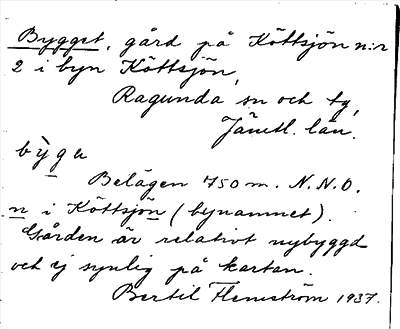 Bygget, gård på Köttsjön n:r
2 i byn Köttsjön,
Ragunda sn och tg,
Jämtl. län.
bỳgɐ
Belägen 750 m. N.N.O.
n i Köttsjön (bynamnet).
Gården är relativt nybyggd
och ej synlig på kartan.
Bertil Flemström 1937.